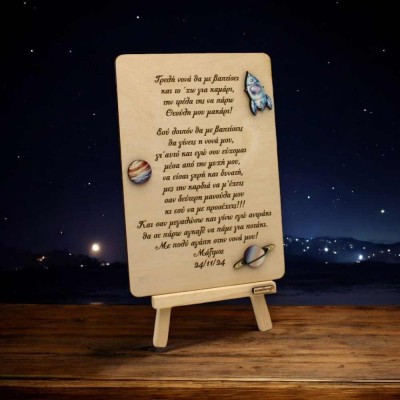 Τρελή νονά θα με βαπτίσει
και το 'χω για καμάρι,
την τρέλα της να πάρω
Θεούλη μου μακάρι!
Εσύ λοιπόν θα με βαπτίσεις
θα γίνεις η νονά μου,
γι'αυτό και εγώ σου εύχομαι
μέσα από την ψυχή μου,
να είσαι γερή και δυνατή,
μες την καρδιά να μ'έχεις
σαν δεύτερη μανούλα μου
κι εσύ να με προσέχεις!!!
Και σαν μεγαλώσω και γίνω εγώ αντράκι
θα σε πάρω αγκαζέ να πάμε για ποτάκι.
Με πολύ αγάπη στην νονά μου!
Μάξιμος
24/11/24